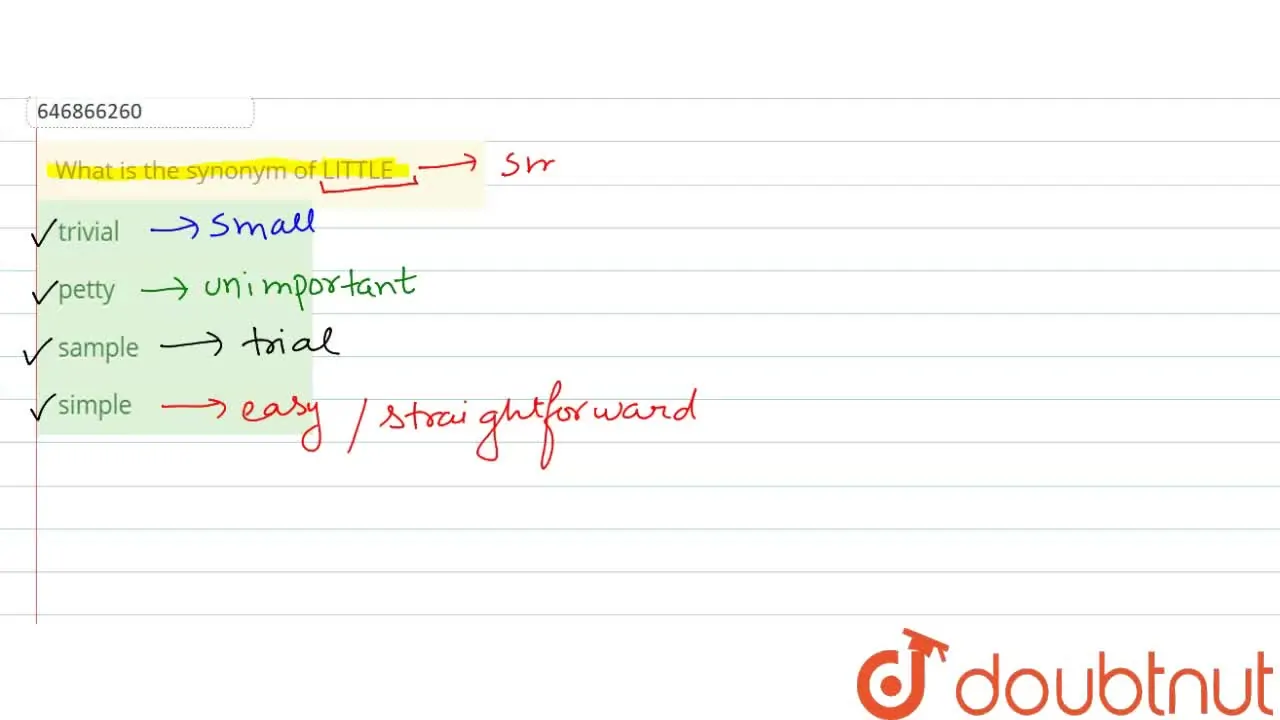 646866260
What is the synonym of LITTLE → sm
✓ trivial → small
✓ petty → unimportant
✓ sample → trial
✓ simple → easy / straightforward
doubtnut